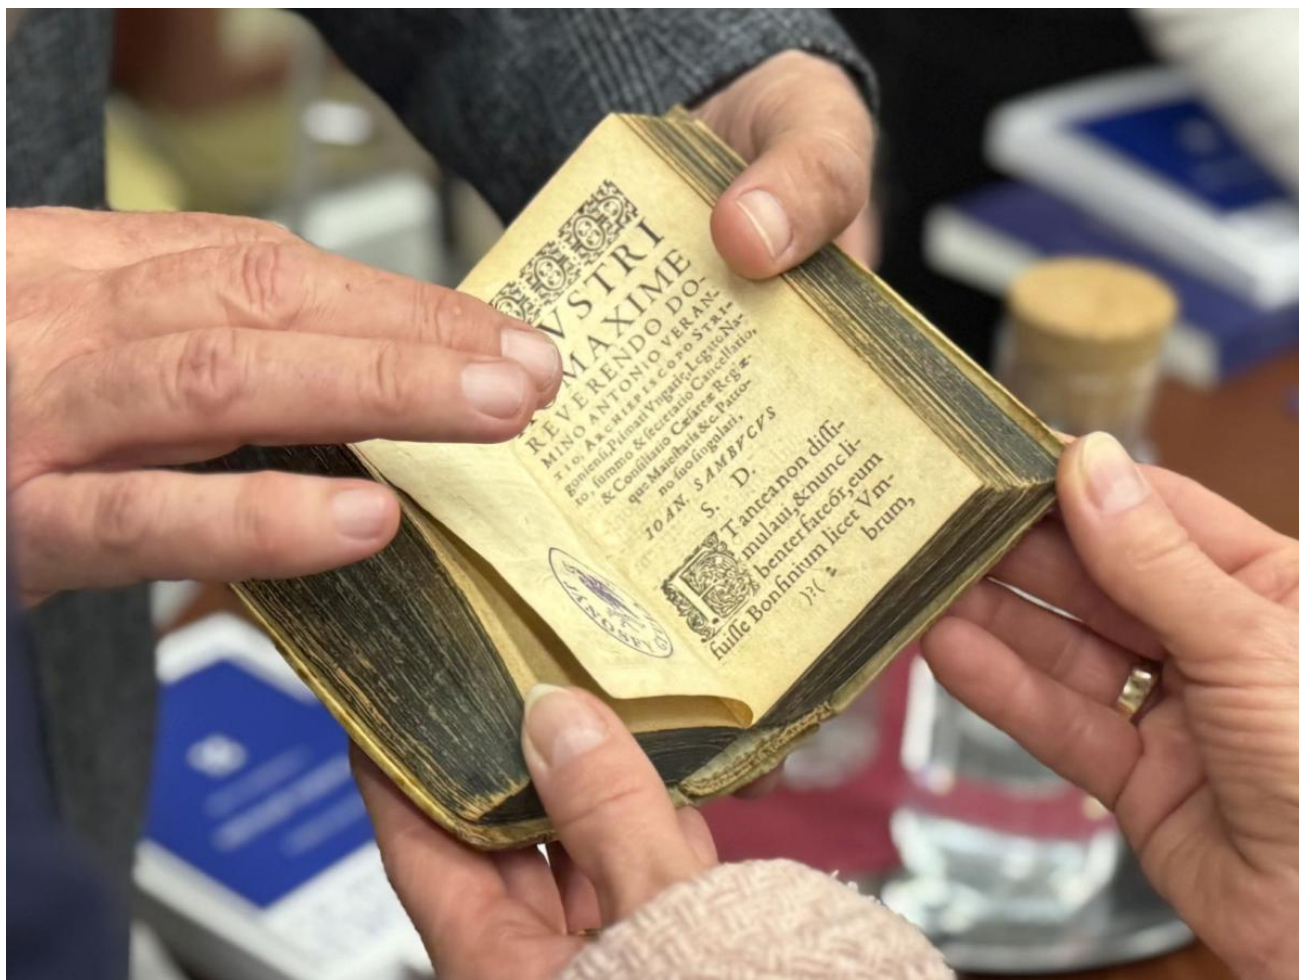 VSTRI
MAXIME
REVERENDO DO-
MINO ANTONIO VERAN-
TIO, ARCHIEPISCOPO STRI-
goniensi, Primati Vngariæ, Legato Na-
to, summo & secretario Cancellario,
& Consiliario Cæsareæ Regiæ-
que Maiestatis &c. Patro-
no suo singulari,
IOAN. SAMBVCVS
S. D.
Tantea non dissi-
mulaui, & nunc li-
benter fateór, eum
fuisse Bonfinium licet Vm-
brum,
)?( 2